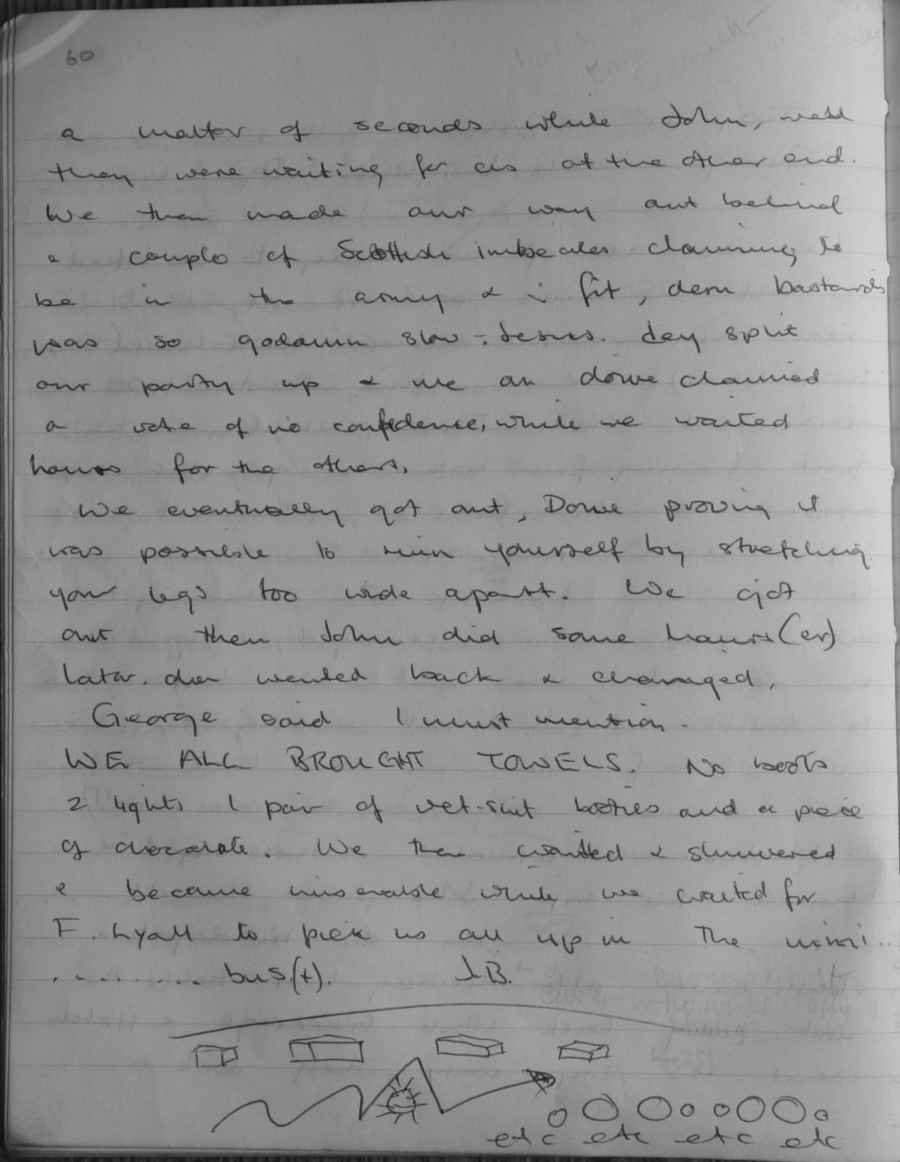 60
a matter of seconds while John, well
they were waiting for us at the other end.
We then made our way out behind
a couple of Scottish imbeciles claiming to
be in the army & fit, dem bastards
was so godamn slow - Jesus. dey split
our party up & we an dowe claimed
a vote of no confidence, while we waited
hours for the others.
We eventually got out, Dowe proving it
was possible to ruin yourself by stretching
your legs too wide apart. We got
out then John did some hours (er)
later. den wented back & changed.
George said I must mention.
WE ALL BROUGHT TOWELS. No boots
2 lights 1 pair of wet-suit booties and a piece
of chocolate. We then waited & shivered
& became miserable while we waited for
F. Lyall to pick us all up in the mini..
......... bus(t). J.B.
etc etc etc etc